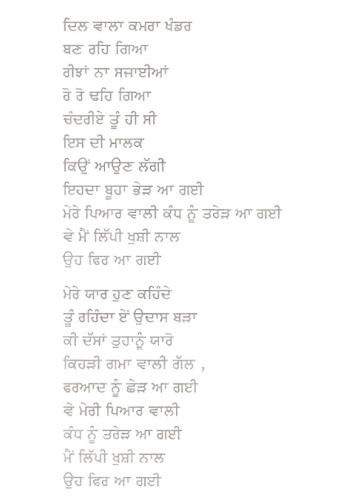 ਦਿਲ ਵਾਲਾ ਕਮਰਾ ਖੰਡਰ
ਬਣ ਰਹਿ ਗਿਆ
ਰੀਝਾਂ ਨਾ ਸਜਾਈਆਂ
ਰੋ ਰੋ ਢਹਿ ਗਿਆ
ਚੰਦਰੀਏ ਤੂੰ ਹੀ ਸੀ
ਇਸ ਦੀ ਮਾਲਕ
ਕਿਉਂ ਆਉਣ ਲੱਗੀ
ਇਹਦਾ ਬੂਹਾ ਭੇੜ ਆ ਗਈ
ਮੇਰੇ ਪਿਆਰ ਵਾਲੀ ਕੰਧ ਨੂੰ ਤਰੇੜ ਆ ਗਈ
ਵੇ ਮੈਂ ਲਿੱਪੀ ਖੁਸ਼ੀ ਨਾਲ
ਉਹ ਫਿਰ ਆ ਗਈ
ਮੇਰੇ ਯਾਰ ਹੁਣ ਕਹਿੰਦੇ
ਤੂੰ ਰਹਿੰਦਾ ਏਂ ਉਦਾਸ ਬੜਾ
ਕੀ ਦੱਸਾਂ ਤੁਹਾਨੂੰ ਯਾਰੋ
ਕਿਹੜੀ ਗਮਾ ਵਾਲੀ ਗੱਲ ,
ਫਰਆਦ ਨੂੰ ਛੇੜ ਆ ਗਈ
ਵੇ ਮੇਰੀ ਪਿਆਰ ਵਾਲੀ
ਕੰਧ ਨੂੰ ਤਰੇੜ ਆ ਗਈ
ਮੈਂ ਲਿੱਪੀ ਖੁਸ਼ੀ ਨਾਲ
ਉਹ ਫਿਰ ਆ ਗਈ